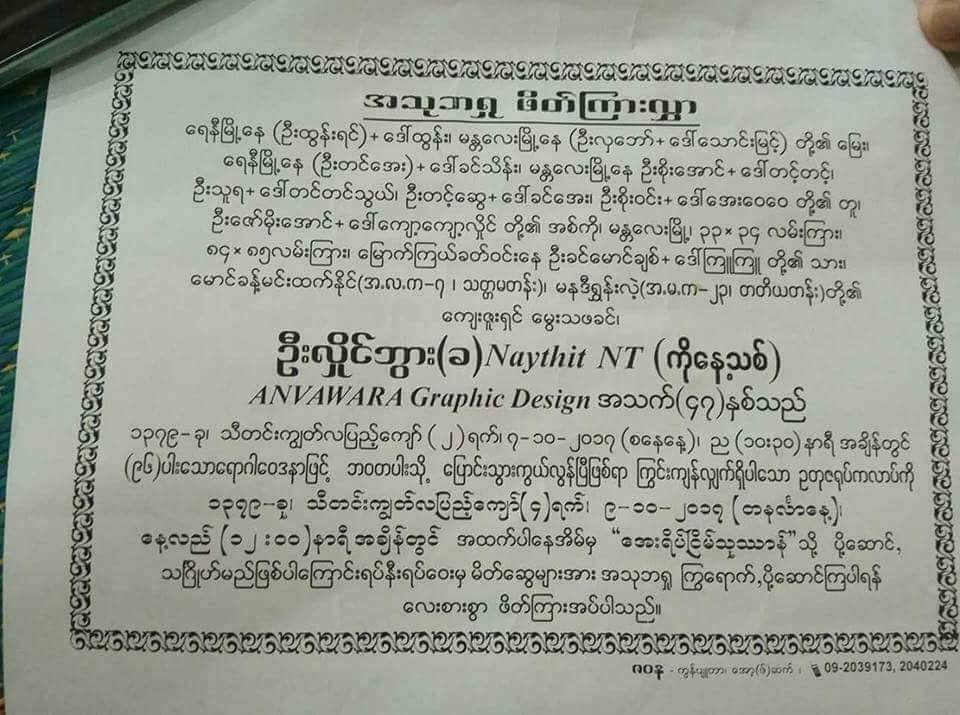 အသုဘရှု ဖိတ်ကြားလွှာ
ရေနီမြို့နေ (ဦးထွန်းရင်)+ ဒေါ်ထွန်း၊ မန္တလေးမြို့နေ (ဦးလှဘော်+ ဒေါ်သောင်းမြင့်) တို့၏ မြေး၊
ရေနီမြို့နေ (ဦးတင်အေး)+ ဒေါ်ခင်သိန်း၊ မန္တလေးမြို့နေ ဦးစိုးအောင်+ ဒေါ်တင့်တင့်၊
ဦးသူရ+ ဒေါ်တင်တင်သွယ်၊ ဦးတင့်ဆွေ+ ဒေါ်ခင်အေး၊ ဦးစိုးဝင်း+ ဒေါ်အေးဝေဝေ တို့၏ တူ၊
ဦးဇော်မိုးအောင်+ ဒေါ်ကျော့ကျော့လှိုင် တို့၏ အစ်ကို၊ မန္တလေးမြို့၊ ၃၃× ၃၄ လမ်းကြား၊
၈၄× ၈၅လမ်းကြား၊ မြောက်ကြယ်ခတ်ဝင်းနေ ဦးခင်မောင်ချစ်+ ဒေါ်ကြူကြူ တို့၏ သား၊
မောင်ခန့်မင်းထက်နိုင်(အ.လ.က-၇ ၊ သတ္တမတန်း)၊ မနဒီရွှန်းလဲ့(အ.မ.က-၂၃၊ တတိယတန်း)တို့၏
ကျေးဇူးရှင် မွေးသဖခင်၊
ဦးလှိုင်ဘွား(ခ)Naythit NT (ကိုနေ့သစ်)
ANVAWARA Graphic Design အသက်(၄၇)နှစ်သည်
၁၃၇၉-ခု၊ သီတင်းကျွတ်လပြည့်ကျော် (၂)ရက်၊ ၇-၁၀-၂၀၁၇ (စနေနေ့)၊ ည (၁၀း၃၀) နာရီ အချိန်တွင်
(၉၆)ပါးသောရောဂါဝေဒနာဖြင့် ဘဝတပါးသို့ ပြောင်းသွားကွယ်လွန်မြီဖြစ်ရာ ကြွင်းကျန်လျှက်ရှိပါသော ဥတုဇရုပ်ကလာပ်ကို
၁၃၇၉-ခု၊ သီတင်းကျွတ်လပြည့်ကျော်(၄)ရက်၊ ၉-၁၀-၂၀၁၇ (တနင်္လာနေ့)၊
နေ့လည် (၁၂ : ၀၀)နာရီ အချိန်တွင် အထက်ပါနေအိမ်မှ "အေးရိပ်ငြိမ်သုဿာန်"သို့ ပို့ဆောင်,
သင်္ဂြိုဟ်မည်ဖြစ်ပါကြောင်းရပ်နီးရပ်ဝေးမှ မိတ်ဆွေများအား အသုဘရှု ကြွရောက်,ပို့ဆောင်ကြပါရန်
လေးစားစွာ ဖိတ်ကြားအပ်ပါသည်။
ဇဝန - ကွန်ပျူတာ၊ အော့(ဖ်)ဆက် ၊ 09-2039173, 2040224